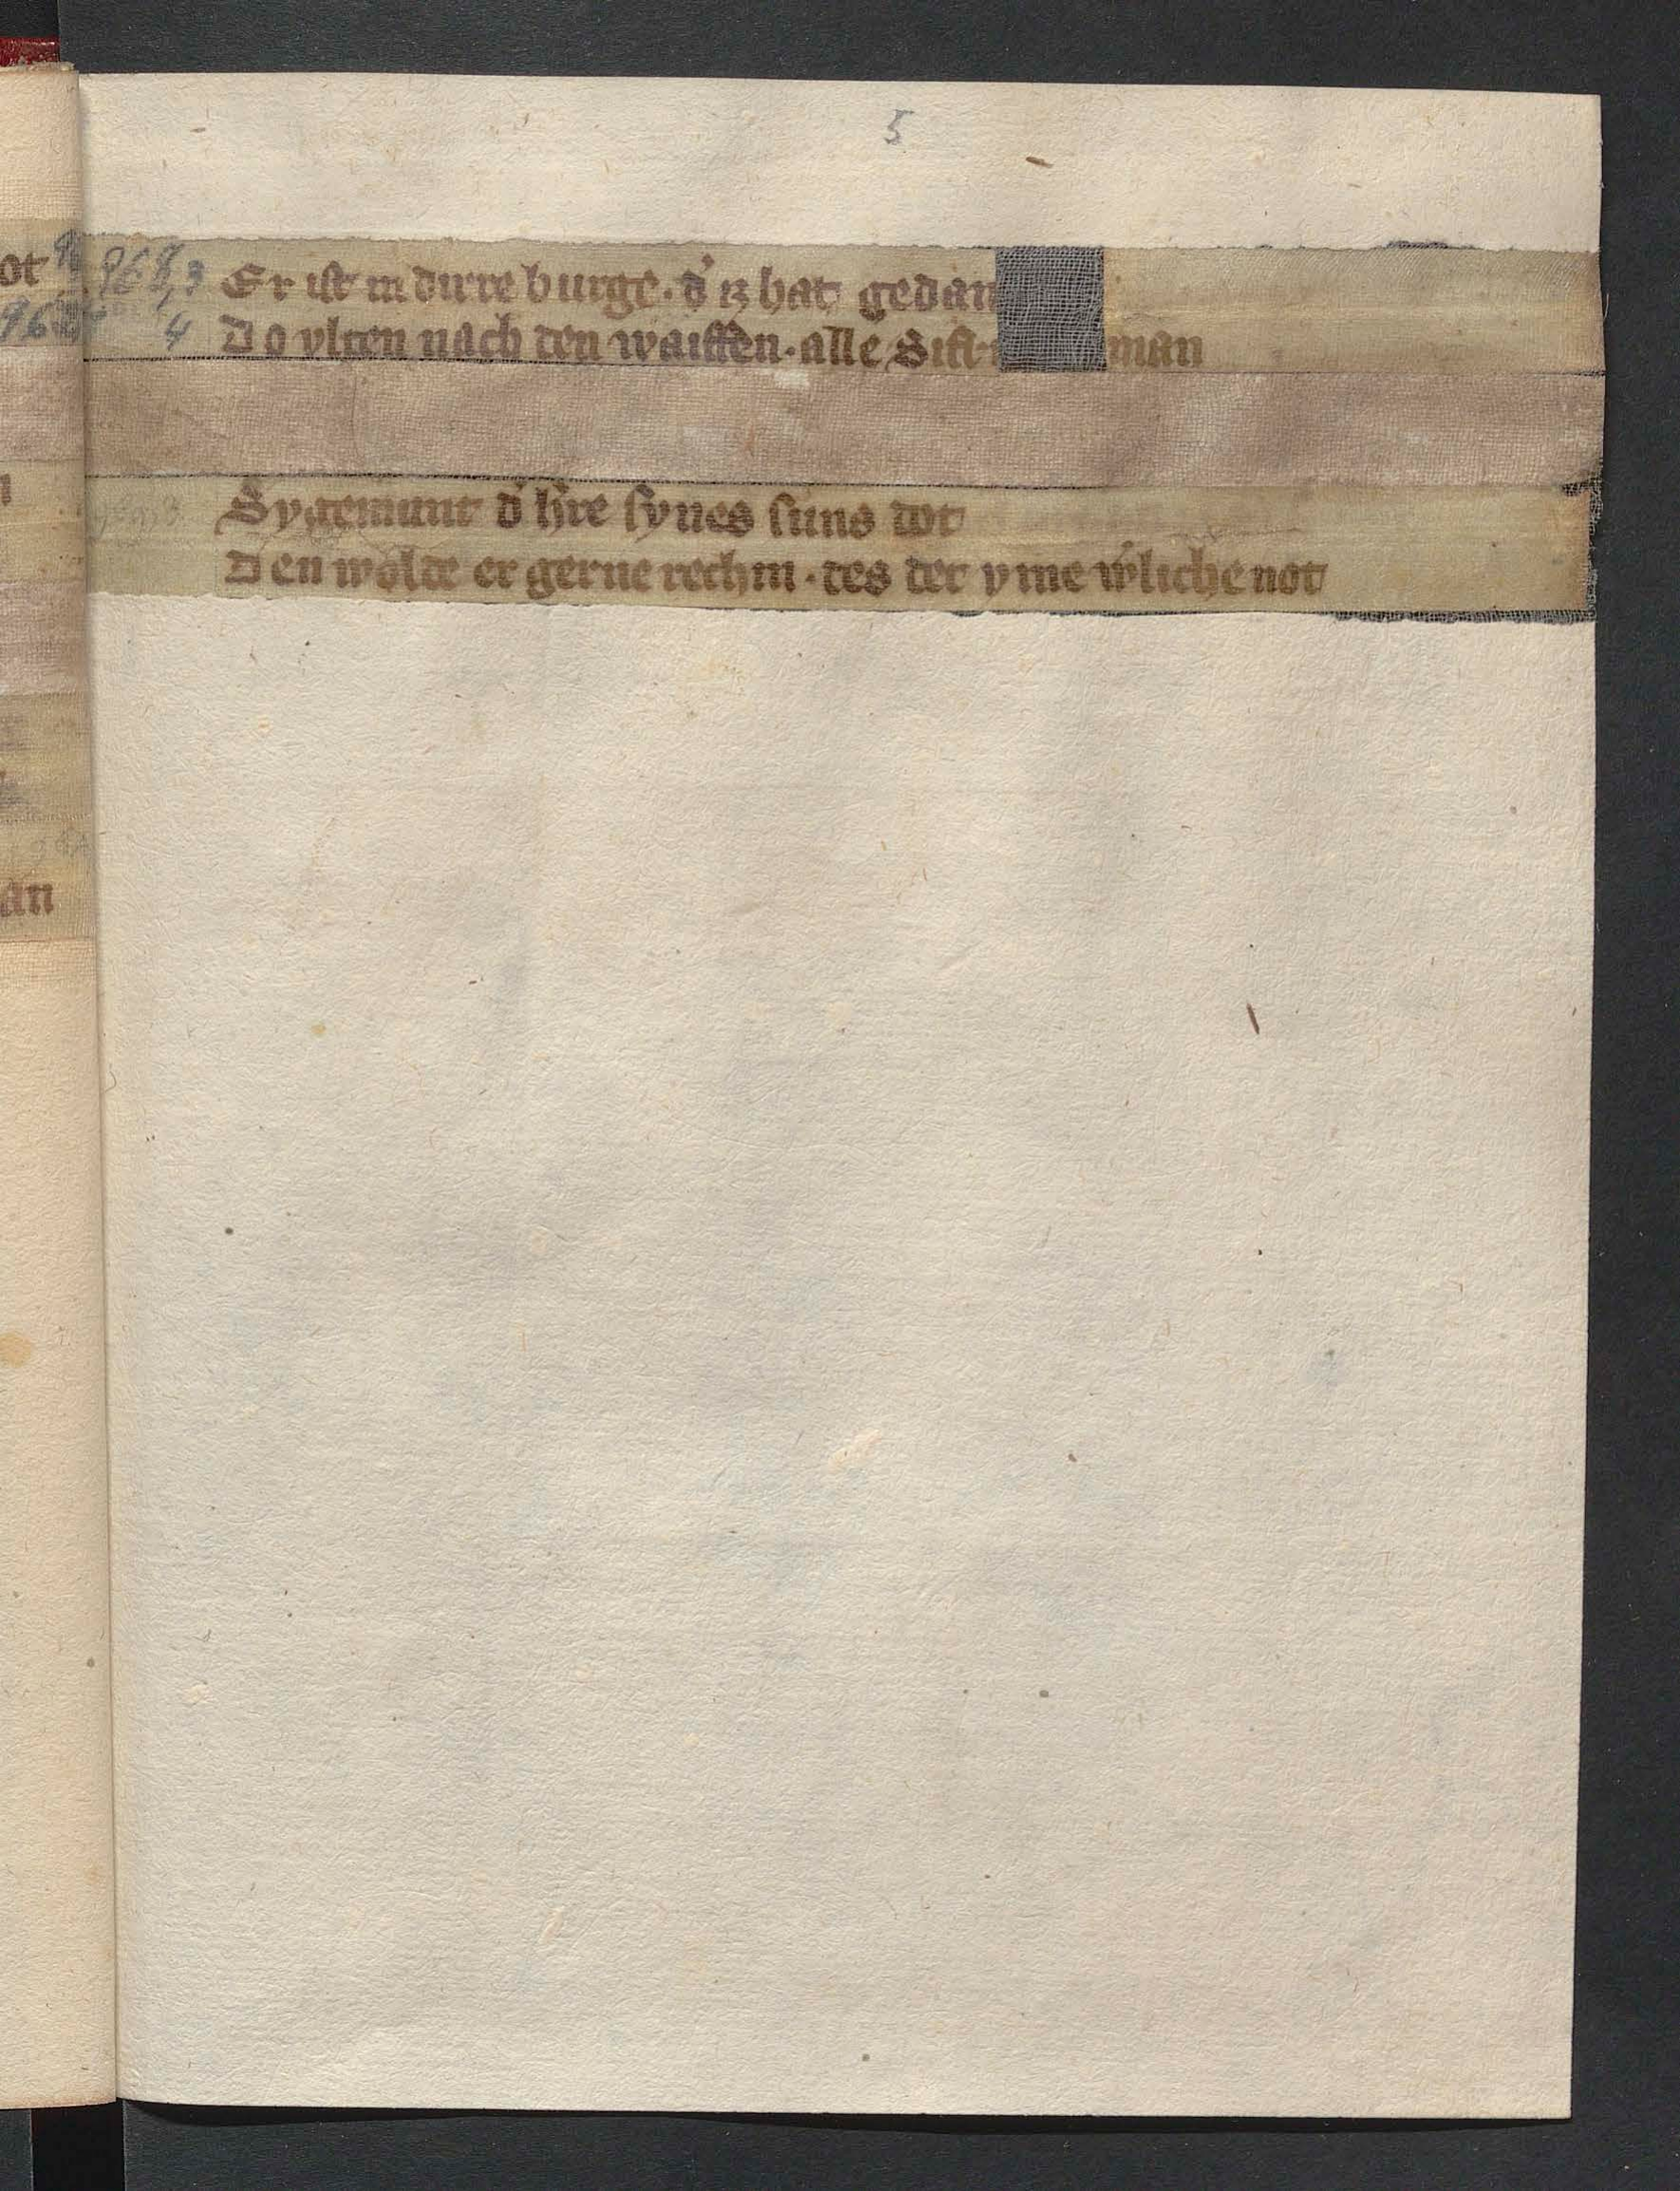 5
968,3 Er ist in dirre burge. d̾ iz hat gedan
4 Do ylten nach den waiffen. alle Sifr man
Sygemunt d̾ h̾re synes suns dot
Den wolde er gerne rechin. des det yme w̾liche not
ot
an